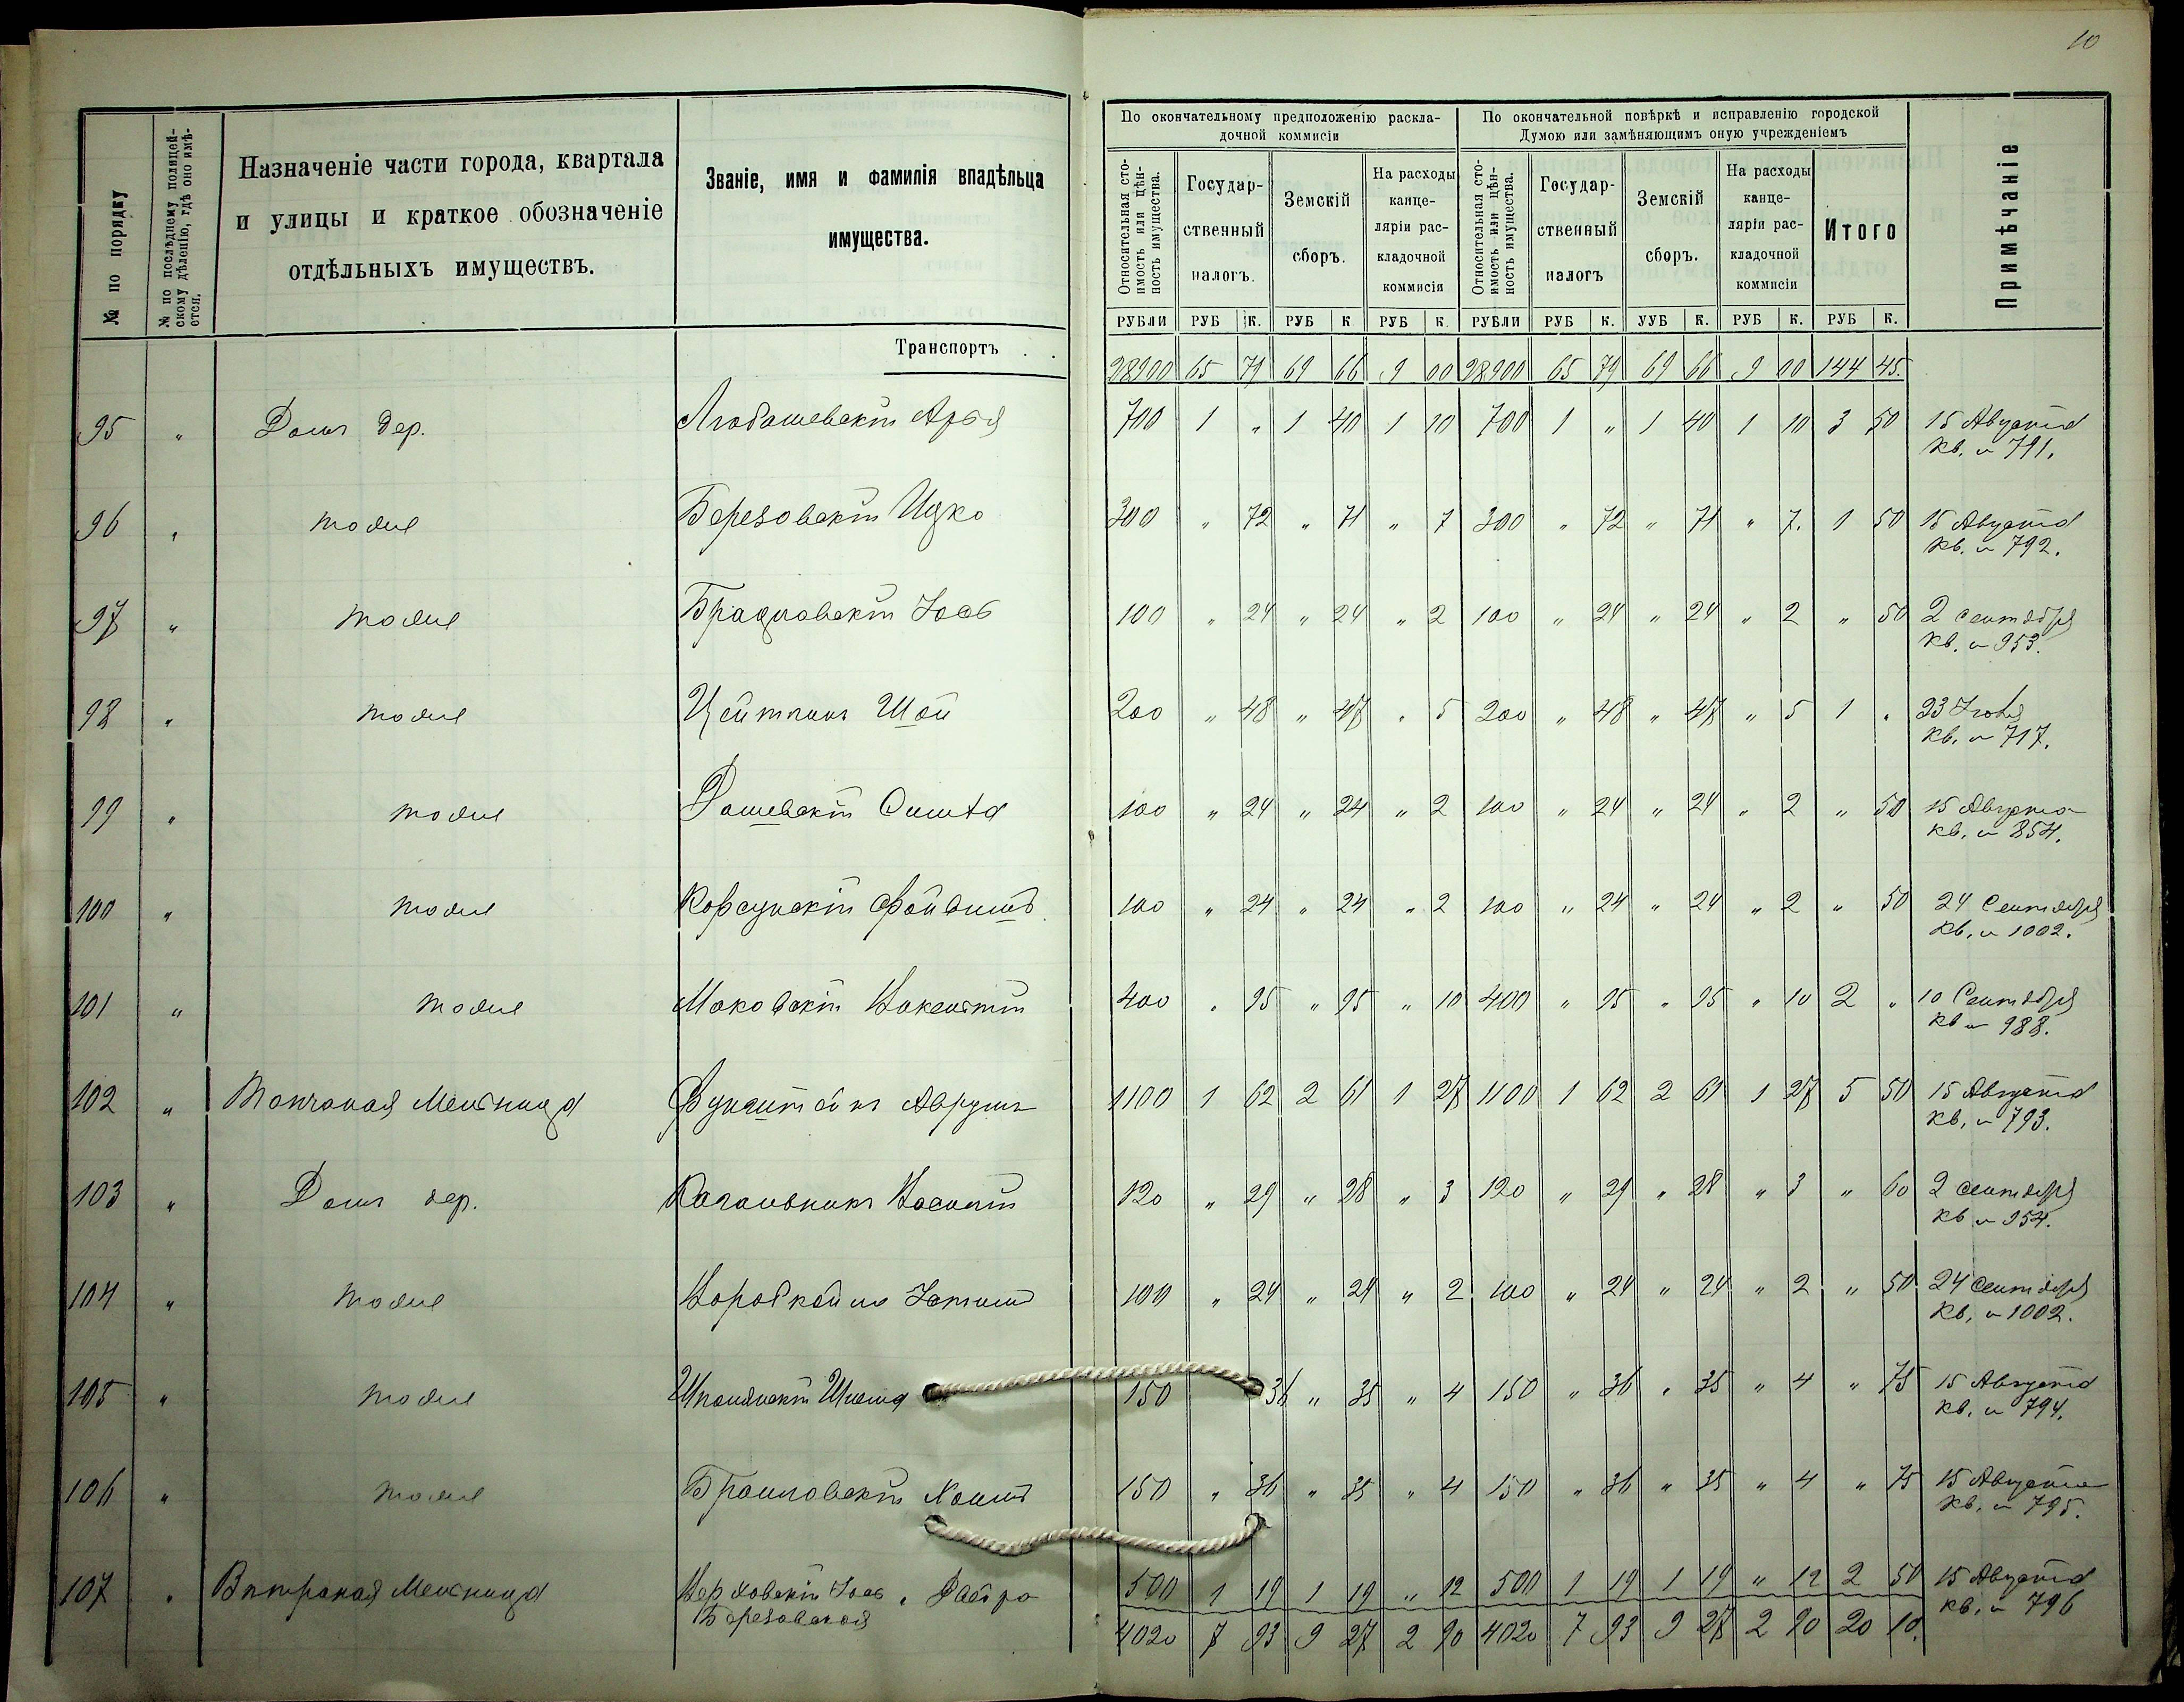 10
№ по порядку
№ по послѣднему полицей-
скому дѣленію, гдѣ оно имѣ-
ется.
Назначеніе части города, квартала
и улицы и краткое обозначеніе
отдѣльныхъ имуществъ.
Званіе, имя и фамилія владѣльца
имущества.
По окончательному предположенію раскла-
дочной коммисіи
По окончательной повѣркѣ и исправленію городской
Думою или замѣняющимъ оную учрежденіемъ
Относительная сто-
имость или цѣн-
ность имущества.
Государ-
ственный
налогъ.
Земскій
сборъ.
На расходы
канце-
ляріи рас-
кладочной
коммисіи
Относительная сто-
имость или цѣн-
ность имущества.
Государ-
ственный
налогъ
Земскій
сборъ.
На расходы
канце-
ляріи рас-
кладочной
коммисіи
Итого
Примѣчаніе
РУБЛИ РУБ К. РУБ К РУБ К. РУБЛИ РУБ К. УУБ К. РУБ К. РУБ К.
Транспортъ . . 28900 65 79 69 66 9 00 28900 65 79 69 66 9 00 144 45.
95 " Домъ дер. Любашевскій Арья 700 1 " 1 40 1 10 700 1 " 1 40 1 10 3 50 15 Августа
кв. № 791.
96 " тоже Березовскій Ицко 300 " 72 " 71 " 7 300 " 72 " 71 " 7. 1 50 15 Августа
кв. № 792.
97 " тоже Іось 100 " 24 " 24 " 2 100 " 24 " 24 " 2 " 50 2 Сентября
кв. № 953.
98 " тоже Цейтлинъ Шая 200 " 48 " 47 " 5 200 " 48 " 47 " 5 1 " 23 Іюля
кв. № 717.
99 " тоже Дашевскій 100 " 24 " 24 " 2 100 " 24 " 24 " 2 " 50 15 Августа
кв. № 854.
100 " тоже Корсунскій Файвишъ 100 " 24 " 24 " 2 100 " 24 " 24 " 2 " 50 24 Сентября
кв. № 1002.
101 " тоже Маковскій Викентій 400 " 95 " 95 " 10 400 " 95 " 95 " 10 2 " 10 Сентября
кв № 988.
102 " Мельница Аврумъ 1100 1 62 2 61 1 27 1100 1 62 2 61 1 27 5 50 15 Августа
кв. № 793.
103 " Домъ дер. 120 " 29 " 28 " 3 120 " 29 " 28 " 3 " 60 2 Сентября
кв № 954.
104 " тоже 100 " 24 " 24 " 2 100 " 24 " 24 " 2 " 50 24 Сентября
кв. № 1002.
105 " тоже 150 36 " 35 " 4 150 " 36 " 35 " 4 " 75 15 Августа
кв. № 794.
106 " тоже Браиловскій Хаимъ 150 " 36 " 35 " 4 150 " 36 " 35 " 4 " 75 15 Августа
кв. № 795.
107 " Вѣтряная Мельница Верховскій Іось, Двойра 500 1 19 1 19 " 12 500 1 19 1 19 " 12 2 50 15 Августа
Березовская кв. № 796
4020 7 93 9 27 2 90 4020 7 93 9 27 2 90 20 10.